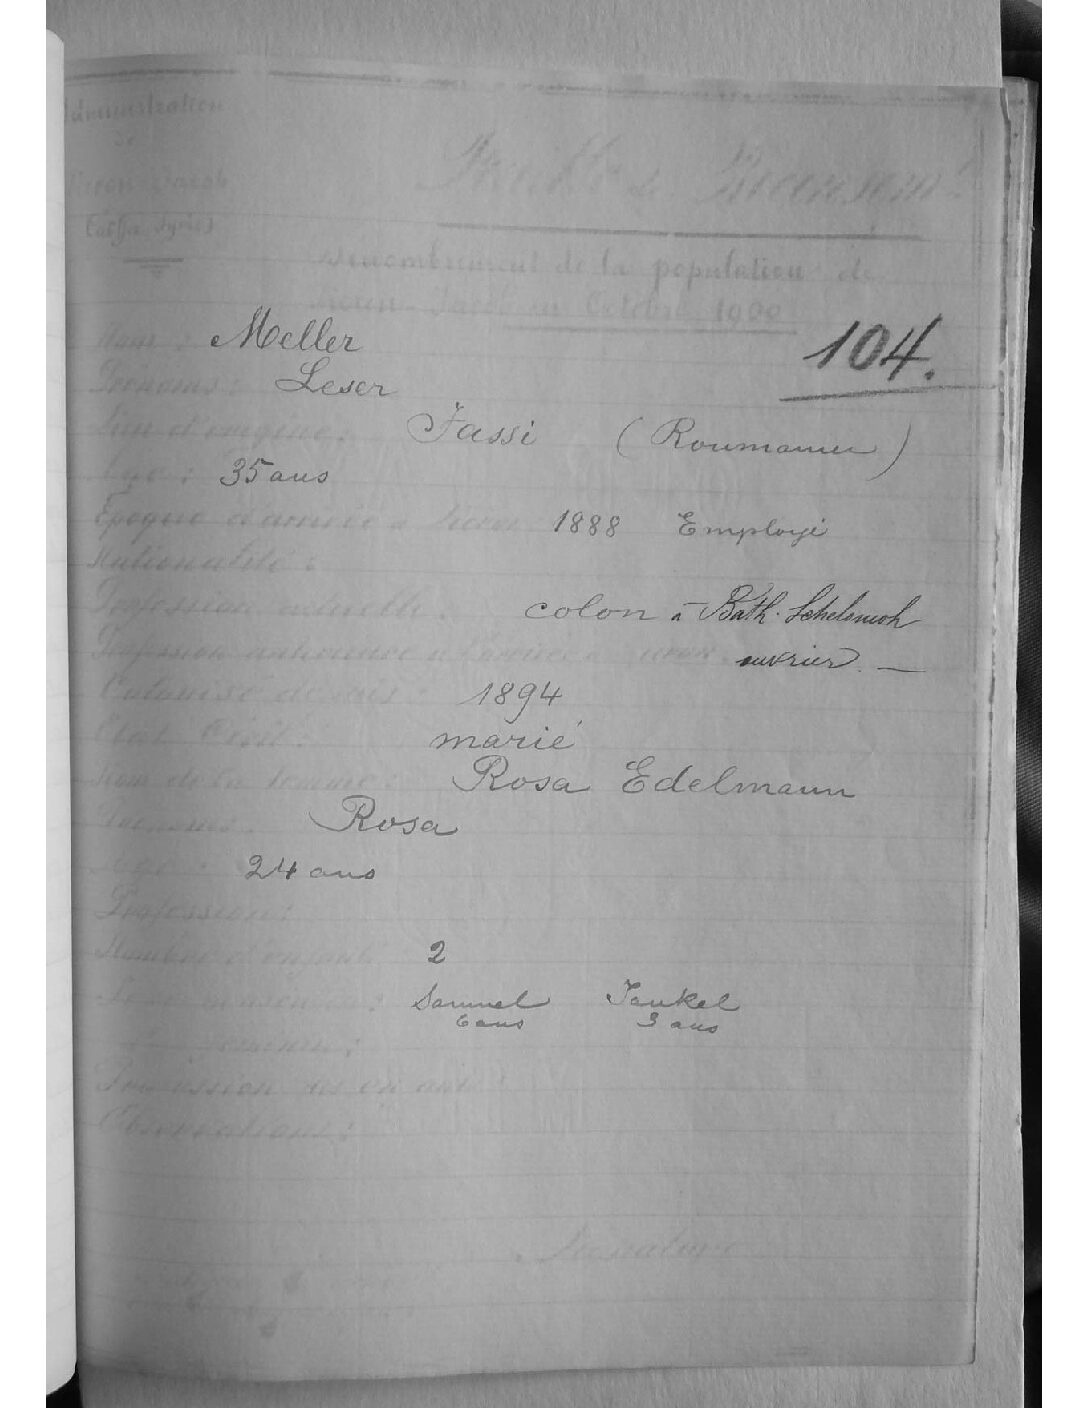 Administration
de
Feuille de Recensemt
Dénombrement de la population de
en Octobre 1900
Nom : Meller
104.
Prénoms : Leser
Lieu d'origine : Jassi (Roumanie)
Age : 35 ans
Epoque d'arrivée à 1888 Employé
Nationalité :
Profession actuelle : colon à Bath-Schelomoh
Profession antérieure à l'arrivée à ouvrier. —
Colonisé depuis : 1894
Etat Civil : marié
Nom de la femme : Rosa Edelmann
Prénoms : Rosa
Age : 24 ans
Profession :
Nombre d'enfants 2
Samuel Jankel
6 ans 3 ans
Profession des enfants :
Observations :
Signature